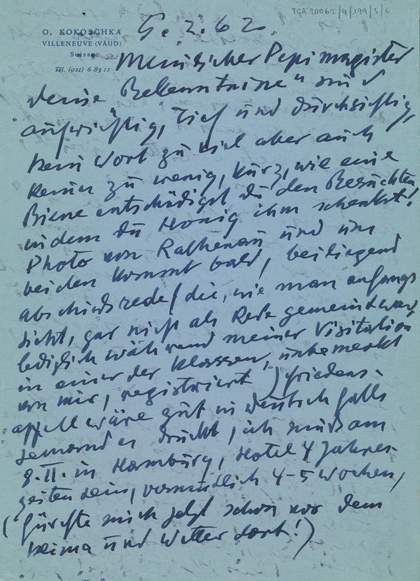 TGA 20062/4/194/5/6
O. KOKOSCHKA
VILLENEUVE (VAUD)
Suisse
Tél. (021) 6 83 12
5. 2. 62.
Meinischer Pepimagister
deine „Bekenntnisse“ sind
aufrichtig, tief und durchsichtig,
kein Wort zu viel aber auch
keines zu wenig, kurz, wie eine
Biene entschädigst du den Besuchten
indem du Honig ihm schenkst!
Photo von Rathenau und uns
beiden kommt bald, beiliegend
abschiedsrede (die, wie man anfangs
sieht, gar nicht als Rede gemeint war,
lediglich während meiner Visitation
in einer der Klassen, unbemerkt
von mir, registriert) friedens-
appell wäre gut in deutsch falls
jemand es druckt, ich muss am
8. II. in Hamburg, Hotel 4 Jahres-
zeiten sein, vermutlich 4-5 Wochen,
(fürchte mich jetzt schon vor dem
Klima und Wetter dort!)